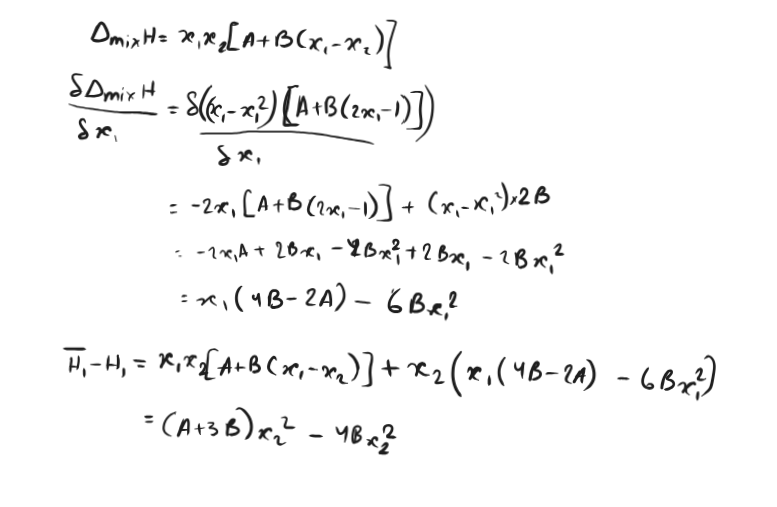 Δmix H = x₁x₂[A+B(x₁-x₂)]
δΔmix H / δx₁ = δ((x₁-x₁²)[A+B(2x₁-1)]) / δx₁
= -2x₁[A+B(2x₁-1)] + (x₁-x₁²)×2B
= -2x₁A + 2Bx₁ - 4Bx₁² + 2Bx₁ - 2Bx₁²
= x₁(4B-2A) - 6Bx₁²
H̅₁-H₁ = x₁x₂[A+B(x₁-x₂)] + x₂(x₁(4B-2A) - 6Bx₁²)
= (A+3B)x₂² - 4Bx₂²